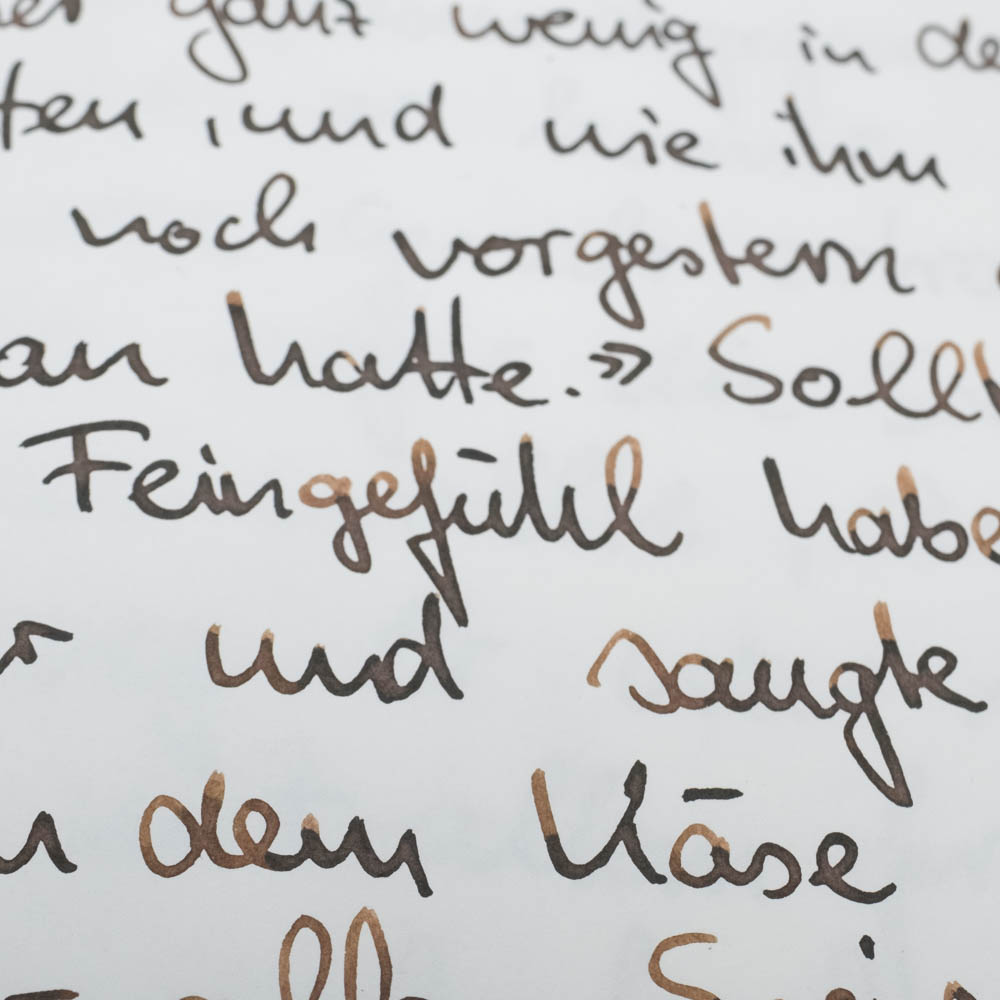 ganz wenig in de
ten, und wie ihm
noch vorgestern
an hatte.» Sollt
Feingefühl habe
r und saugte
n dem Käse